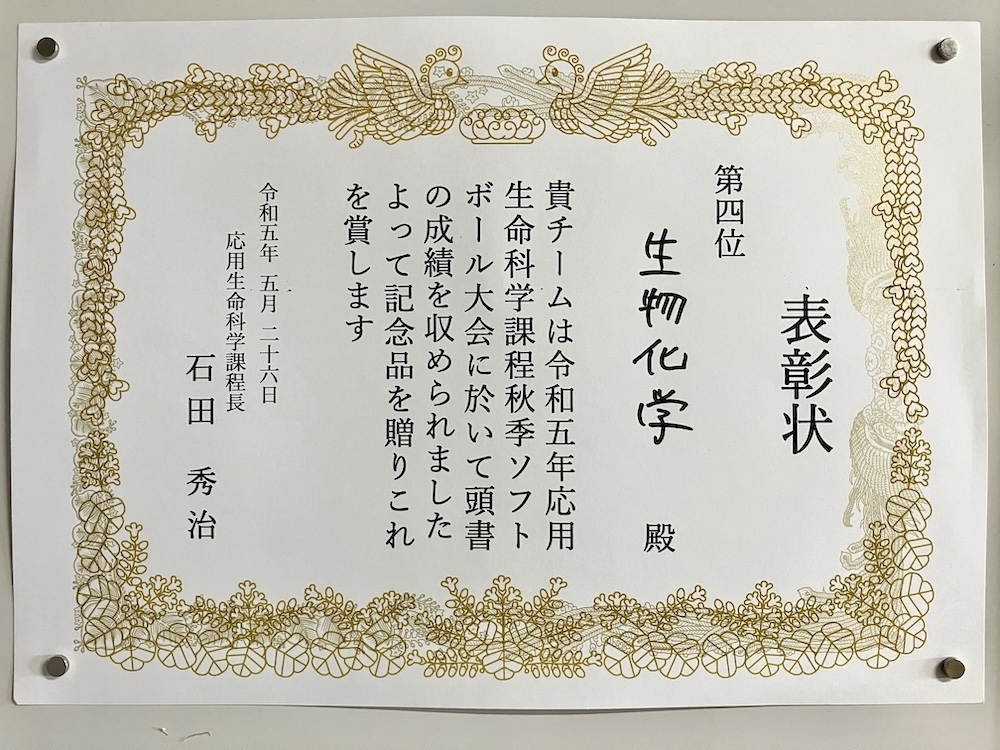 表彰状
第四位
生物化学 殿
貴チームは令和五年応用
生命科学課程秋季ソフト
ボール大会に於いて頭書
の成績を収められました
よって記念品を贈りこれ
を賞します
令和五年 五月 二十六日
応用生命科学課程長
石田 秀治